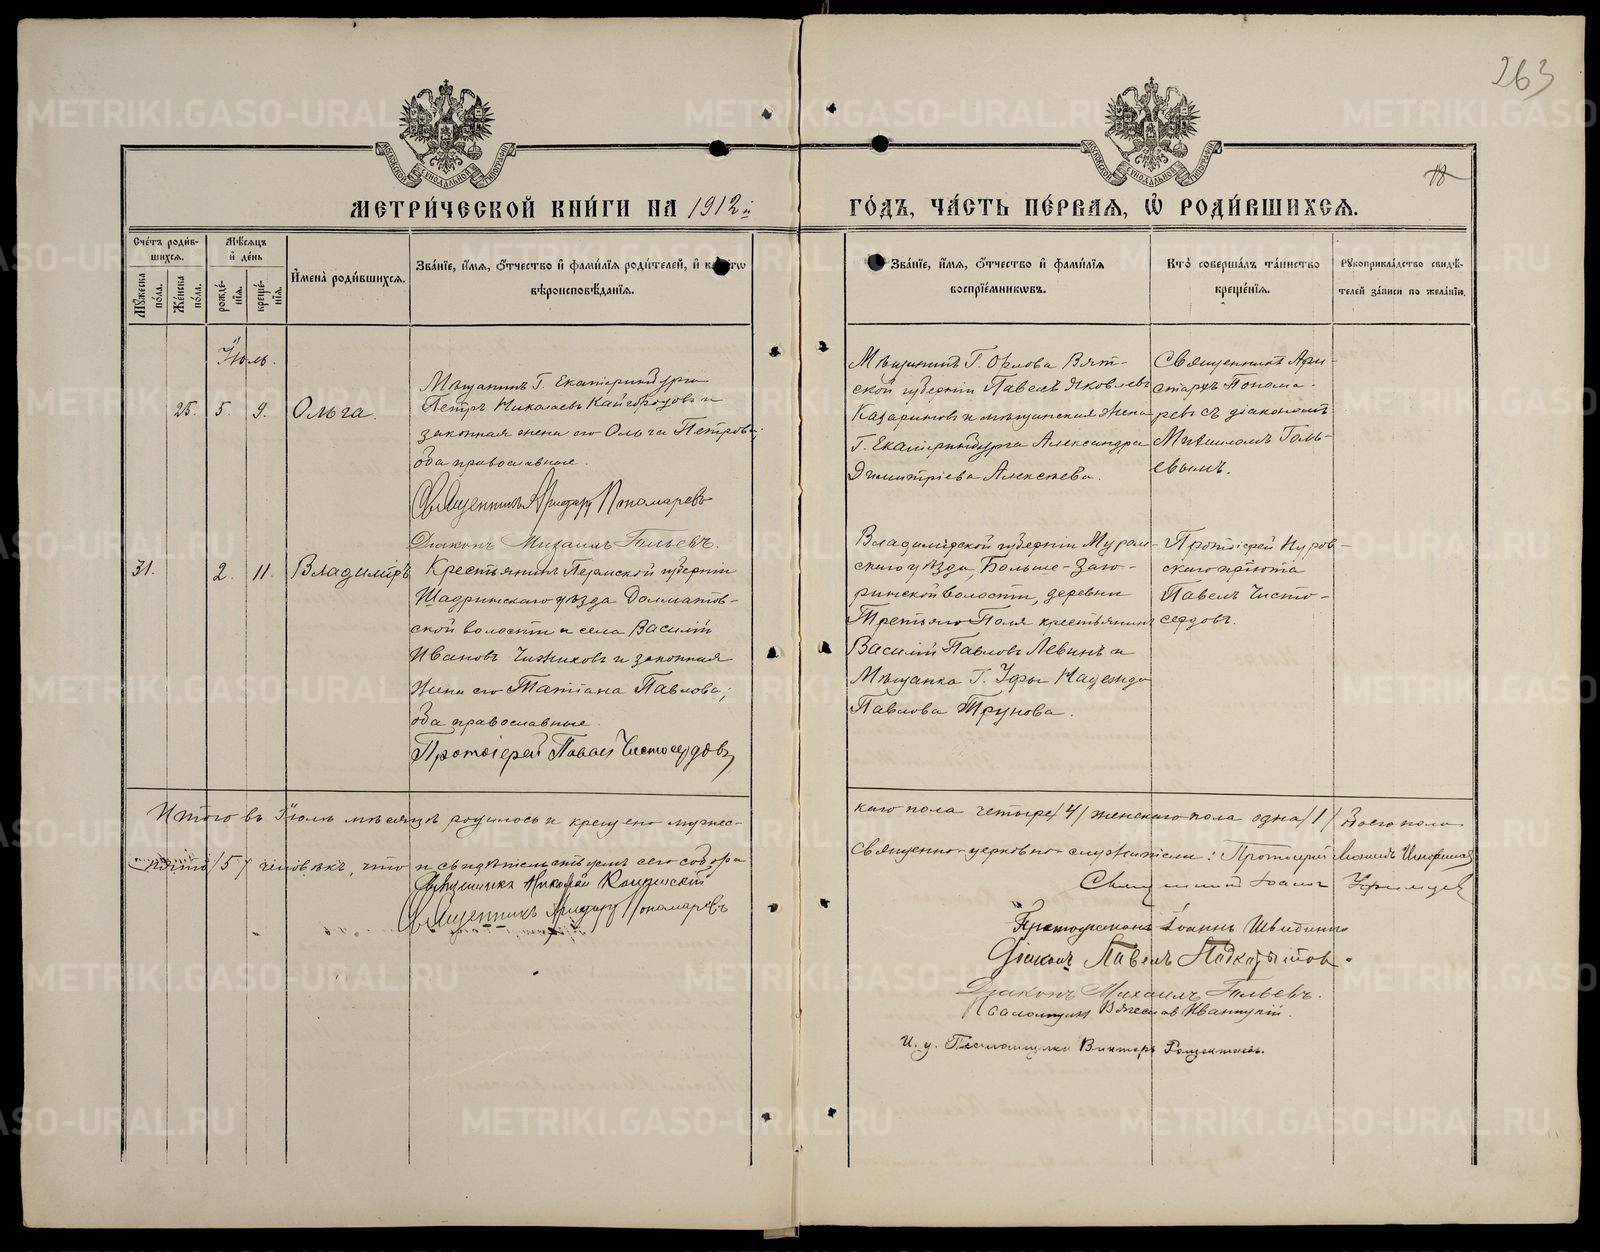 263
18
МОСКОВСКОЙ СѴНОДАЛЬНОЙ ТИПОГРАФІИ
МОСКОВСКОЙ СѴНОДАЛЬНОЙ ТИПОГРАФІИ
МЕТРИ́ЧЕСКОЙ КНИ́ГИ НА 1912й ГО́ДЪ, ЧА́СТЬ ПЕ́РВАЯ, Ѡ РОДИ́ВШИХСЯ.
Сче́тъ роди́в-
шихся.
Му́жеска по́ла.
Же́нска по́ла.
Мѣ́сяцъ
и҆ де́нь
рожде́-
нїя.
креще́-
нїя.
И҆мена̀ роди́вшихся.
Зва́нїе, и҆́мя, ѻ҆́тчество и҆ фами́лїя роди́телей, и҆ како́гѡ
вѣроисповѣ́данїя.
Зва́нїе, и҆́мя, ѻ҆́тчество и҆ фами́лїя
воспрїе́мникѡвъ.
Кто̀ соверша́лъ та́инство
креще́нїя.
Рукоприкла́дство свидѣ́-
телей за́писи по жела́нїю.
Іюль.
25. 5. 9. Ольга.
Мѣщанинъ Г. Екатеринбурга
Петръ Николаевъ Кайгородовъ и
законная жена его Ольга Петрова;
оба православные.
Священникъ Аристархъ Пономаревъ
Діаконъ Михаилъ Гольевъ.
Мѣщанинъ Г. Орлова Вят-
ской губерніи Павелъ Яковлевъ
Казариновъ и мѣщанская жена
Г. Екатеринбурга Александра
Димитріева Алексѣева.
Священникъ Ари-
стархъ Понома-
ревъ съ діакономъ
Михаиломъ Голь-
евымъ.
31. 2. 11. Владиміръ
Крестьянинъ Пермской губерніи
Шадринскаго уѣзда Долматов-
ской волости и села Василій
Ивановъ Чижиковъ и законная
жена его Татіана Павлова;
оба православные.
Протоіерей Павелъ Чистосердовъ
Владимірской губерніи Муром-
скаго уѣзда, Больше-Заго-
ринской волости, деревни
Третьяго Поля крестьянинъ
Василій Павловъ Левинъ и
Мѣщанка Г. Уфы Надежда
Павлова Трунова.
Протоіерей Нуров-
скаго пріюта
Павелъ Чисто-
сердовъ.
Итого въ Іюлѣ мѣсяцѣ родилось и крещено мужес-
каго пола четыре /4/ женскаго пола одна /1/ Обоего пола
/5/ человѣкъ, что и свидѣтельствуемъ сего собора
священно-церковно-служители: Протоіерей
Священникъ Николай
Священникъ Аристархъ Пономаревъ
Священникъ Іоаннъ
Протодіаконъ Іоаннъ
Діаконъ Павелъ
Діаконъ Михаилъ Гольевъ.
Псаломщикъ
И. д. Псаломщика Викторъ
METRIKI.GASO-URAL.RU